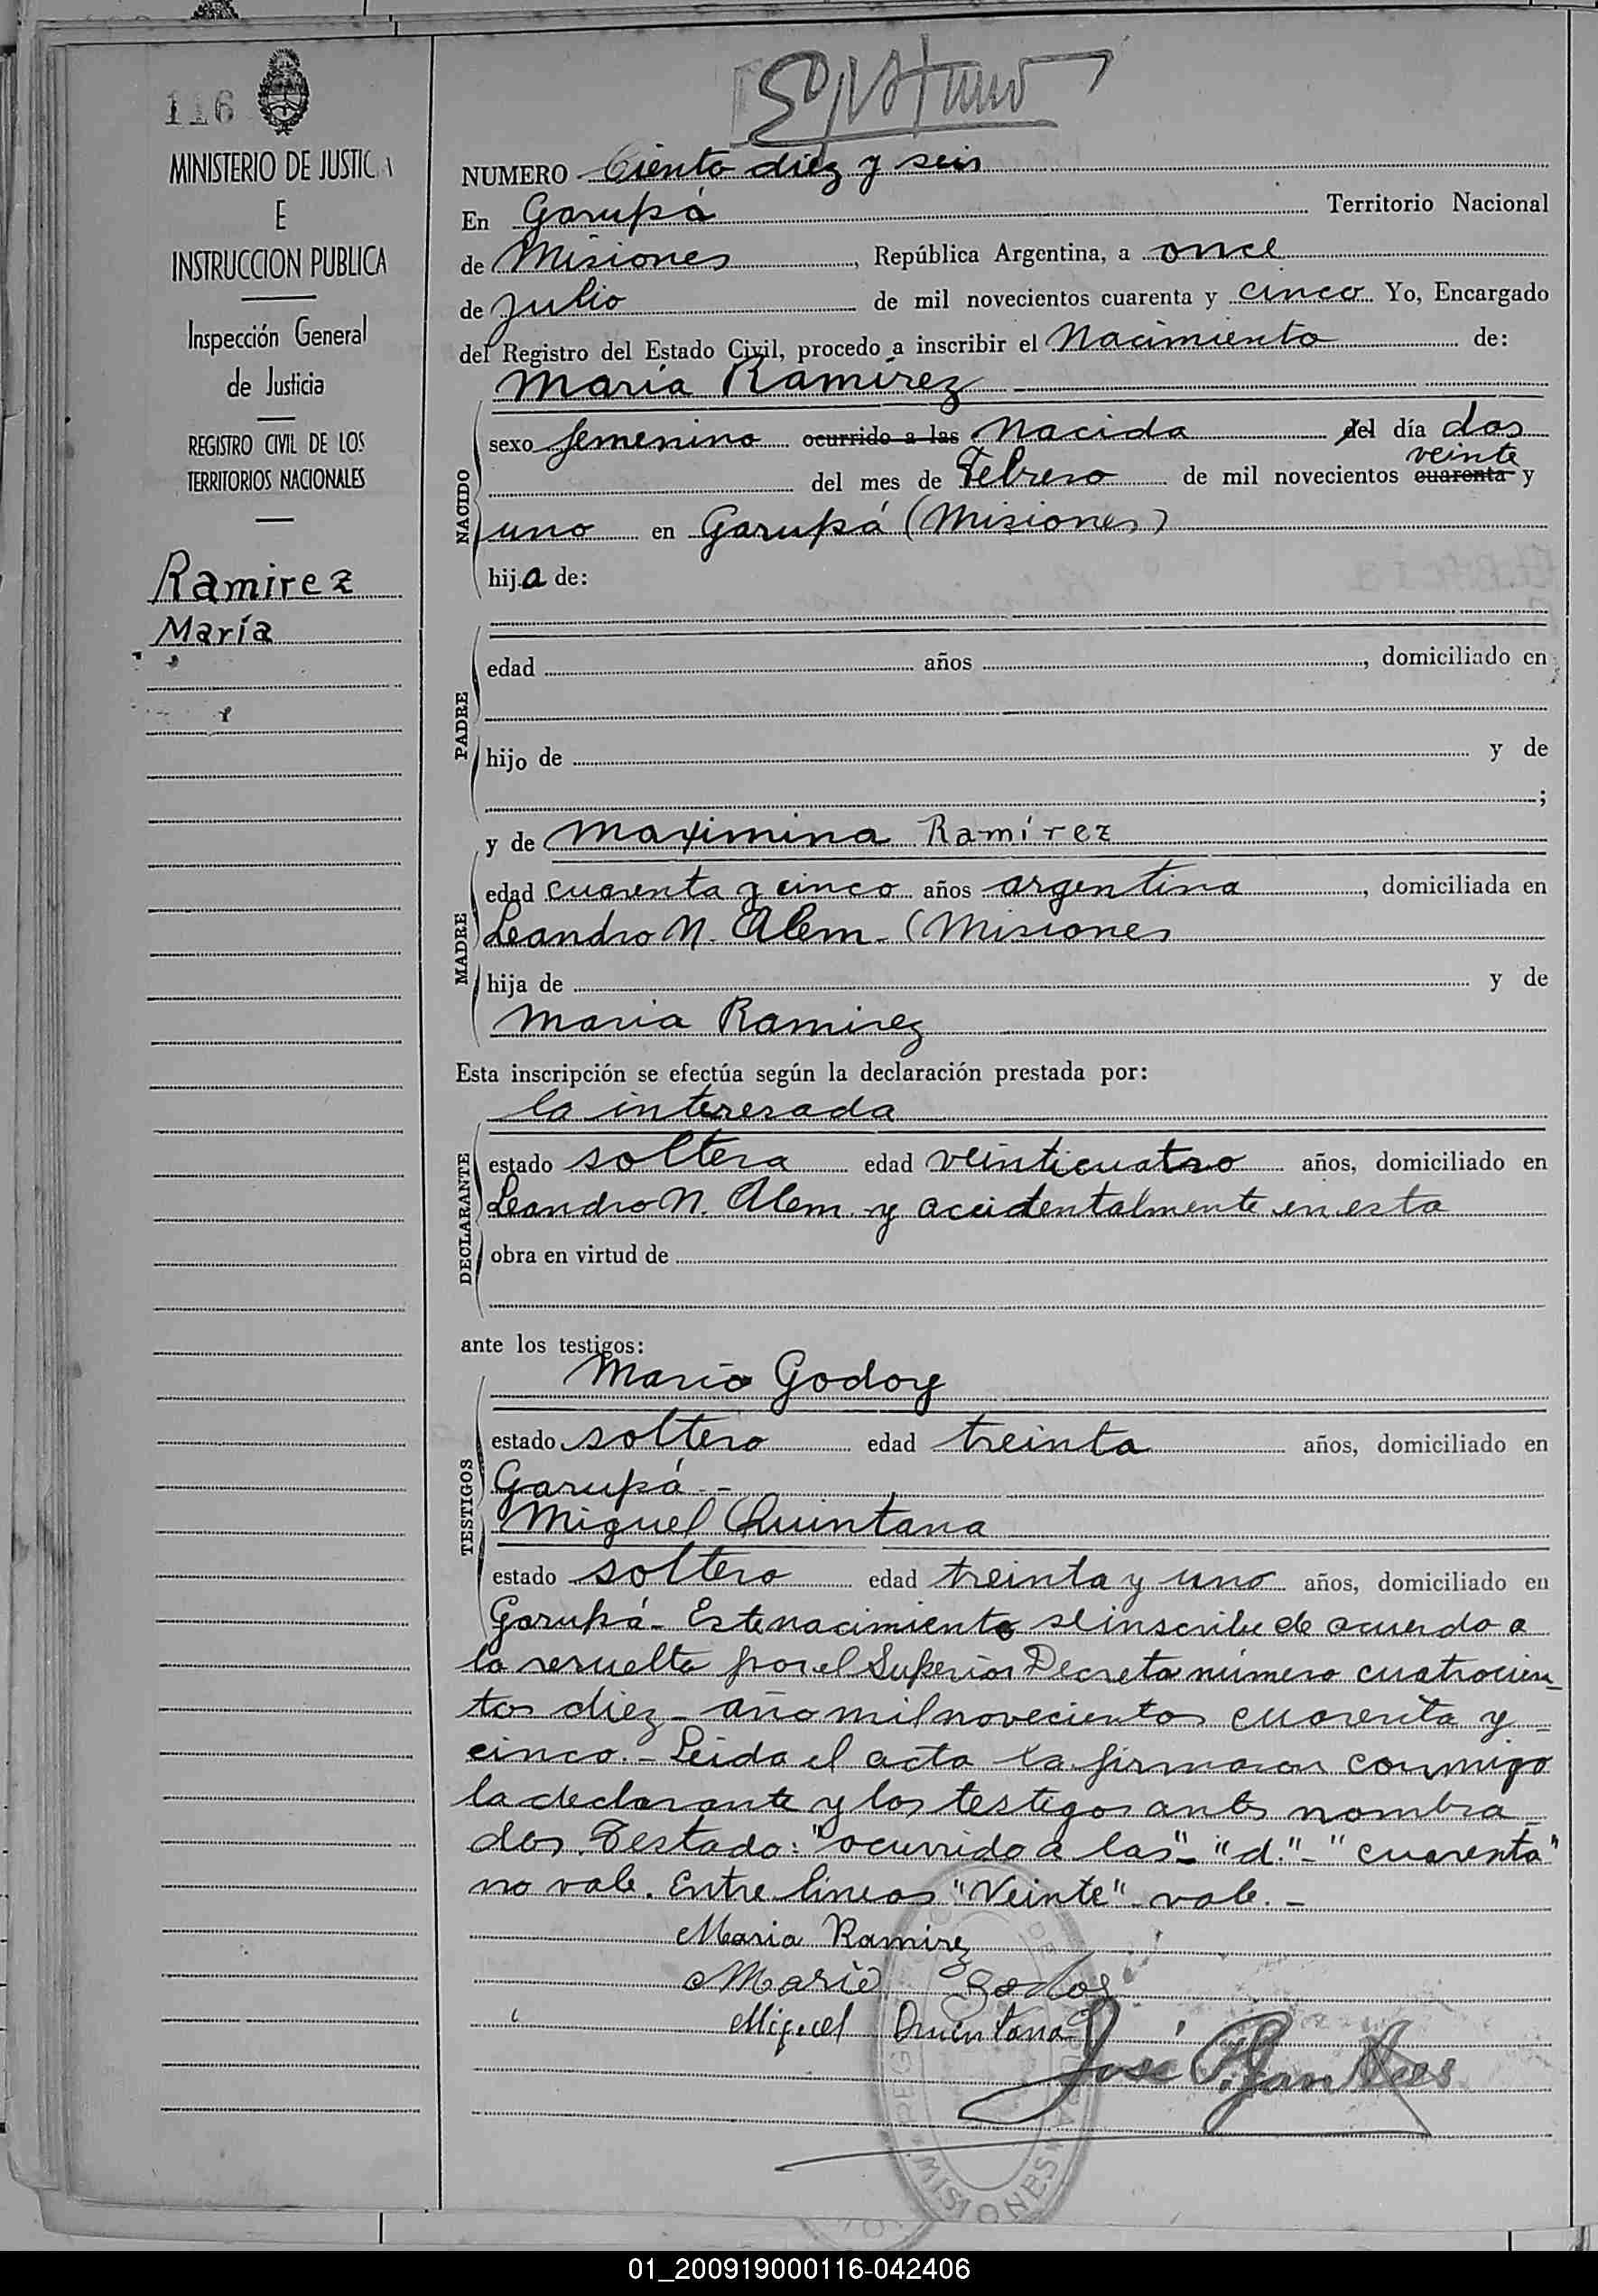 116
MINISTERIO DE JUSTICIA
E
INSTRUCCION PUBLICA
Inspección General
de Justicia
REGISTRO CIVIL DE LOS
TERRITORIOS NACIONALES
Ramirez
María
NUMERO Ciento diez y seis
En Garupá Territorio Nacional
de Misiones, República Argentina, a once
de Julio de mil novecientos cuarenta y cinco Yo, Encargado
del Registro del Estado Civil, procedo a inscribir el Nacimiento de:
Maria Ramirez
NACIDO
sexo femenino ocurrido a las Nacida del día dos
veinte
del mes de Febrero de mil novecientos cuarenta y
uno en Garupá (Misiones)
hija de:
PADRE
edad años , domiciliado en
hijo de y de
;
y de Maximina Ramírez
MADRE
edad cuarenta y cinco años argentina, domiciliada en
Leandro N. Alem - (Misiones
hija de y de
Maria Ramirez
Esta inscripción se efectúa según la declaración prestada por:
la interesada
DECLARANTE
estado soltera edad veinticuatro años, domiciliado en
Leandro N. Alem y accidentalmente en esta
obra en virtud de
ante los testigos:
Mario Godoy
TESTIGOS
estado soltero edad treinta años, domiciliado en
Garupá -
Miguel Quintana
estado soltero edad treinta y uno años, domiciliado en
Garupá - Este nacimiento se inscribe de acuerdo a
lo resuelto por el Superior Decreto número cuatrocien_
tos diez - año mil novecientos cuarenta y -
cinco. - Leida el acta la firmaron conmigo
la declarante y los testigos antes nombra_
dos. Testado: "ocurrido a las" - "d." - "cuarenta"
no vale. Entre líneas "Veinte" vale. -
Maria Ramirez
Mario Godoy
Miguel Quintana
José
MISIONES
01_200919000116-042406